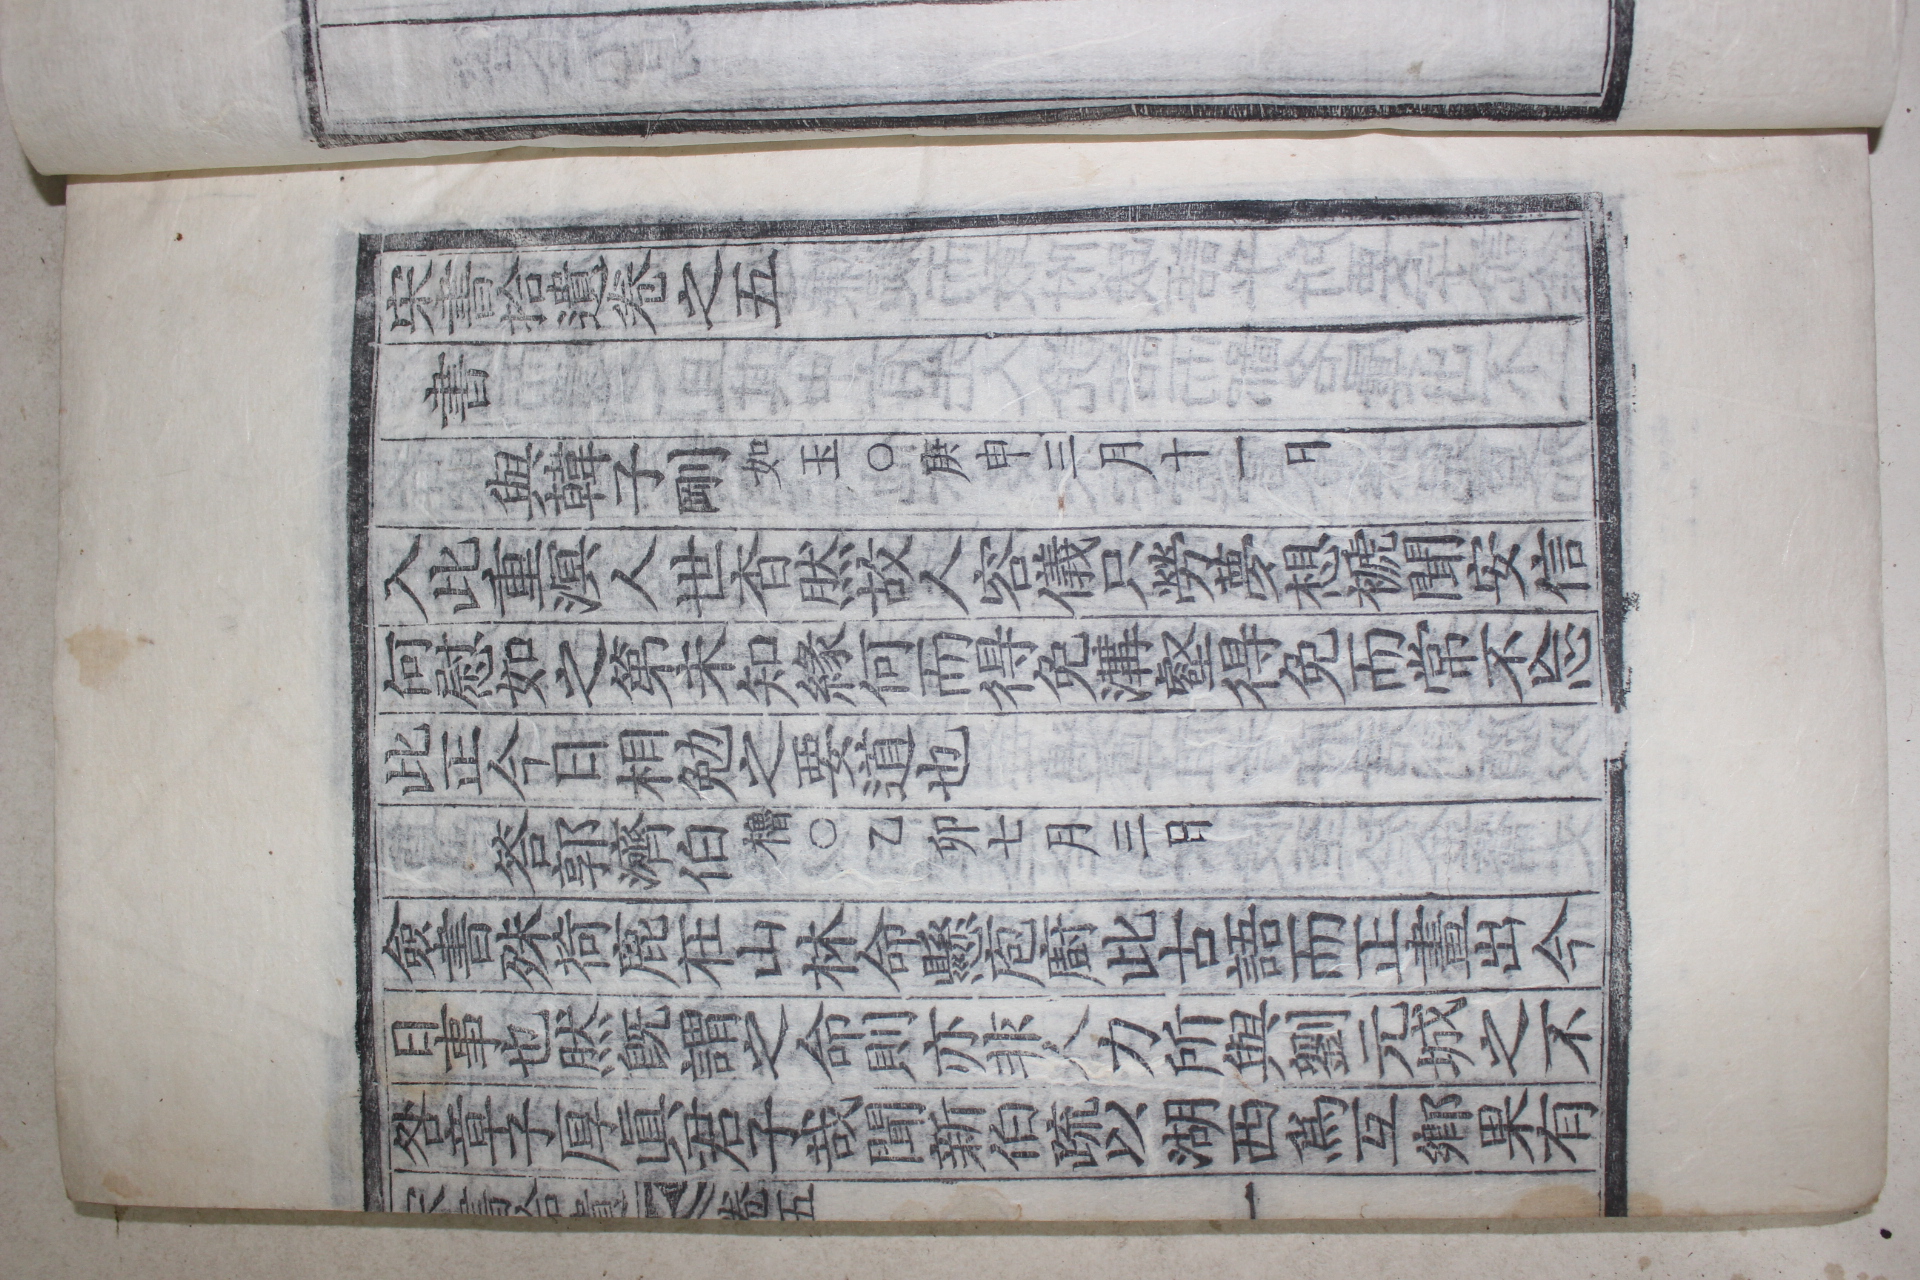 宋書拾遺卷之五
書
與韓子剛 如玉○庚申三月十一日
入此重源人世杳然故人容儀只勞夢想褫聞安信
何慰如之第未知緣何而得免溝壑得免而常不忘
此正今日相勉之要道也
答郭濟伯 櫓○乙卯七月三日
僉書殊荷鹿在山林命懸庖廚此古語而正畫出今
日事也然旣謂之命則亦非人力所與劉元城之不
咎章子厚眞君子哉聞新伯疏以湖西爲互鄕果有
宋書拾遺 卷五 一